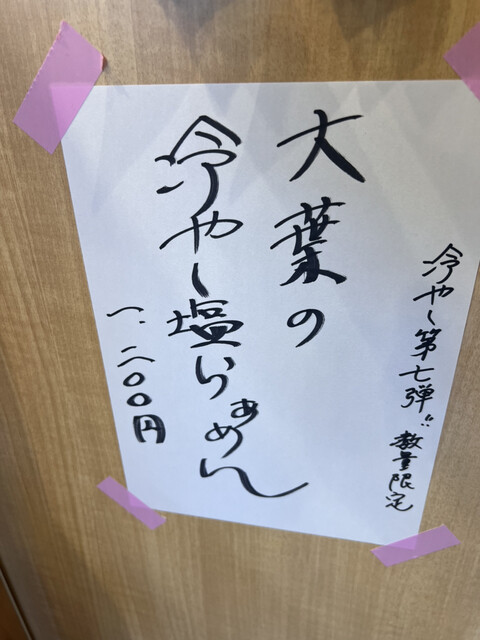 冷やし第七弾!! 数量限定
大葉の
冷やし塩らぁめん
一、二〇〇円